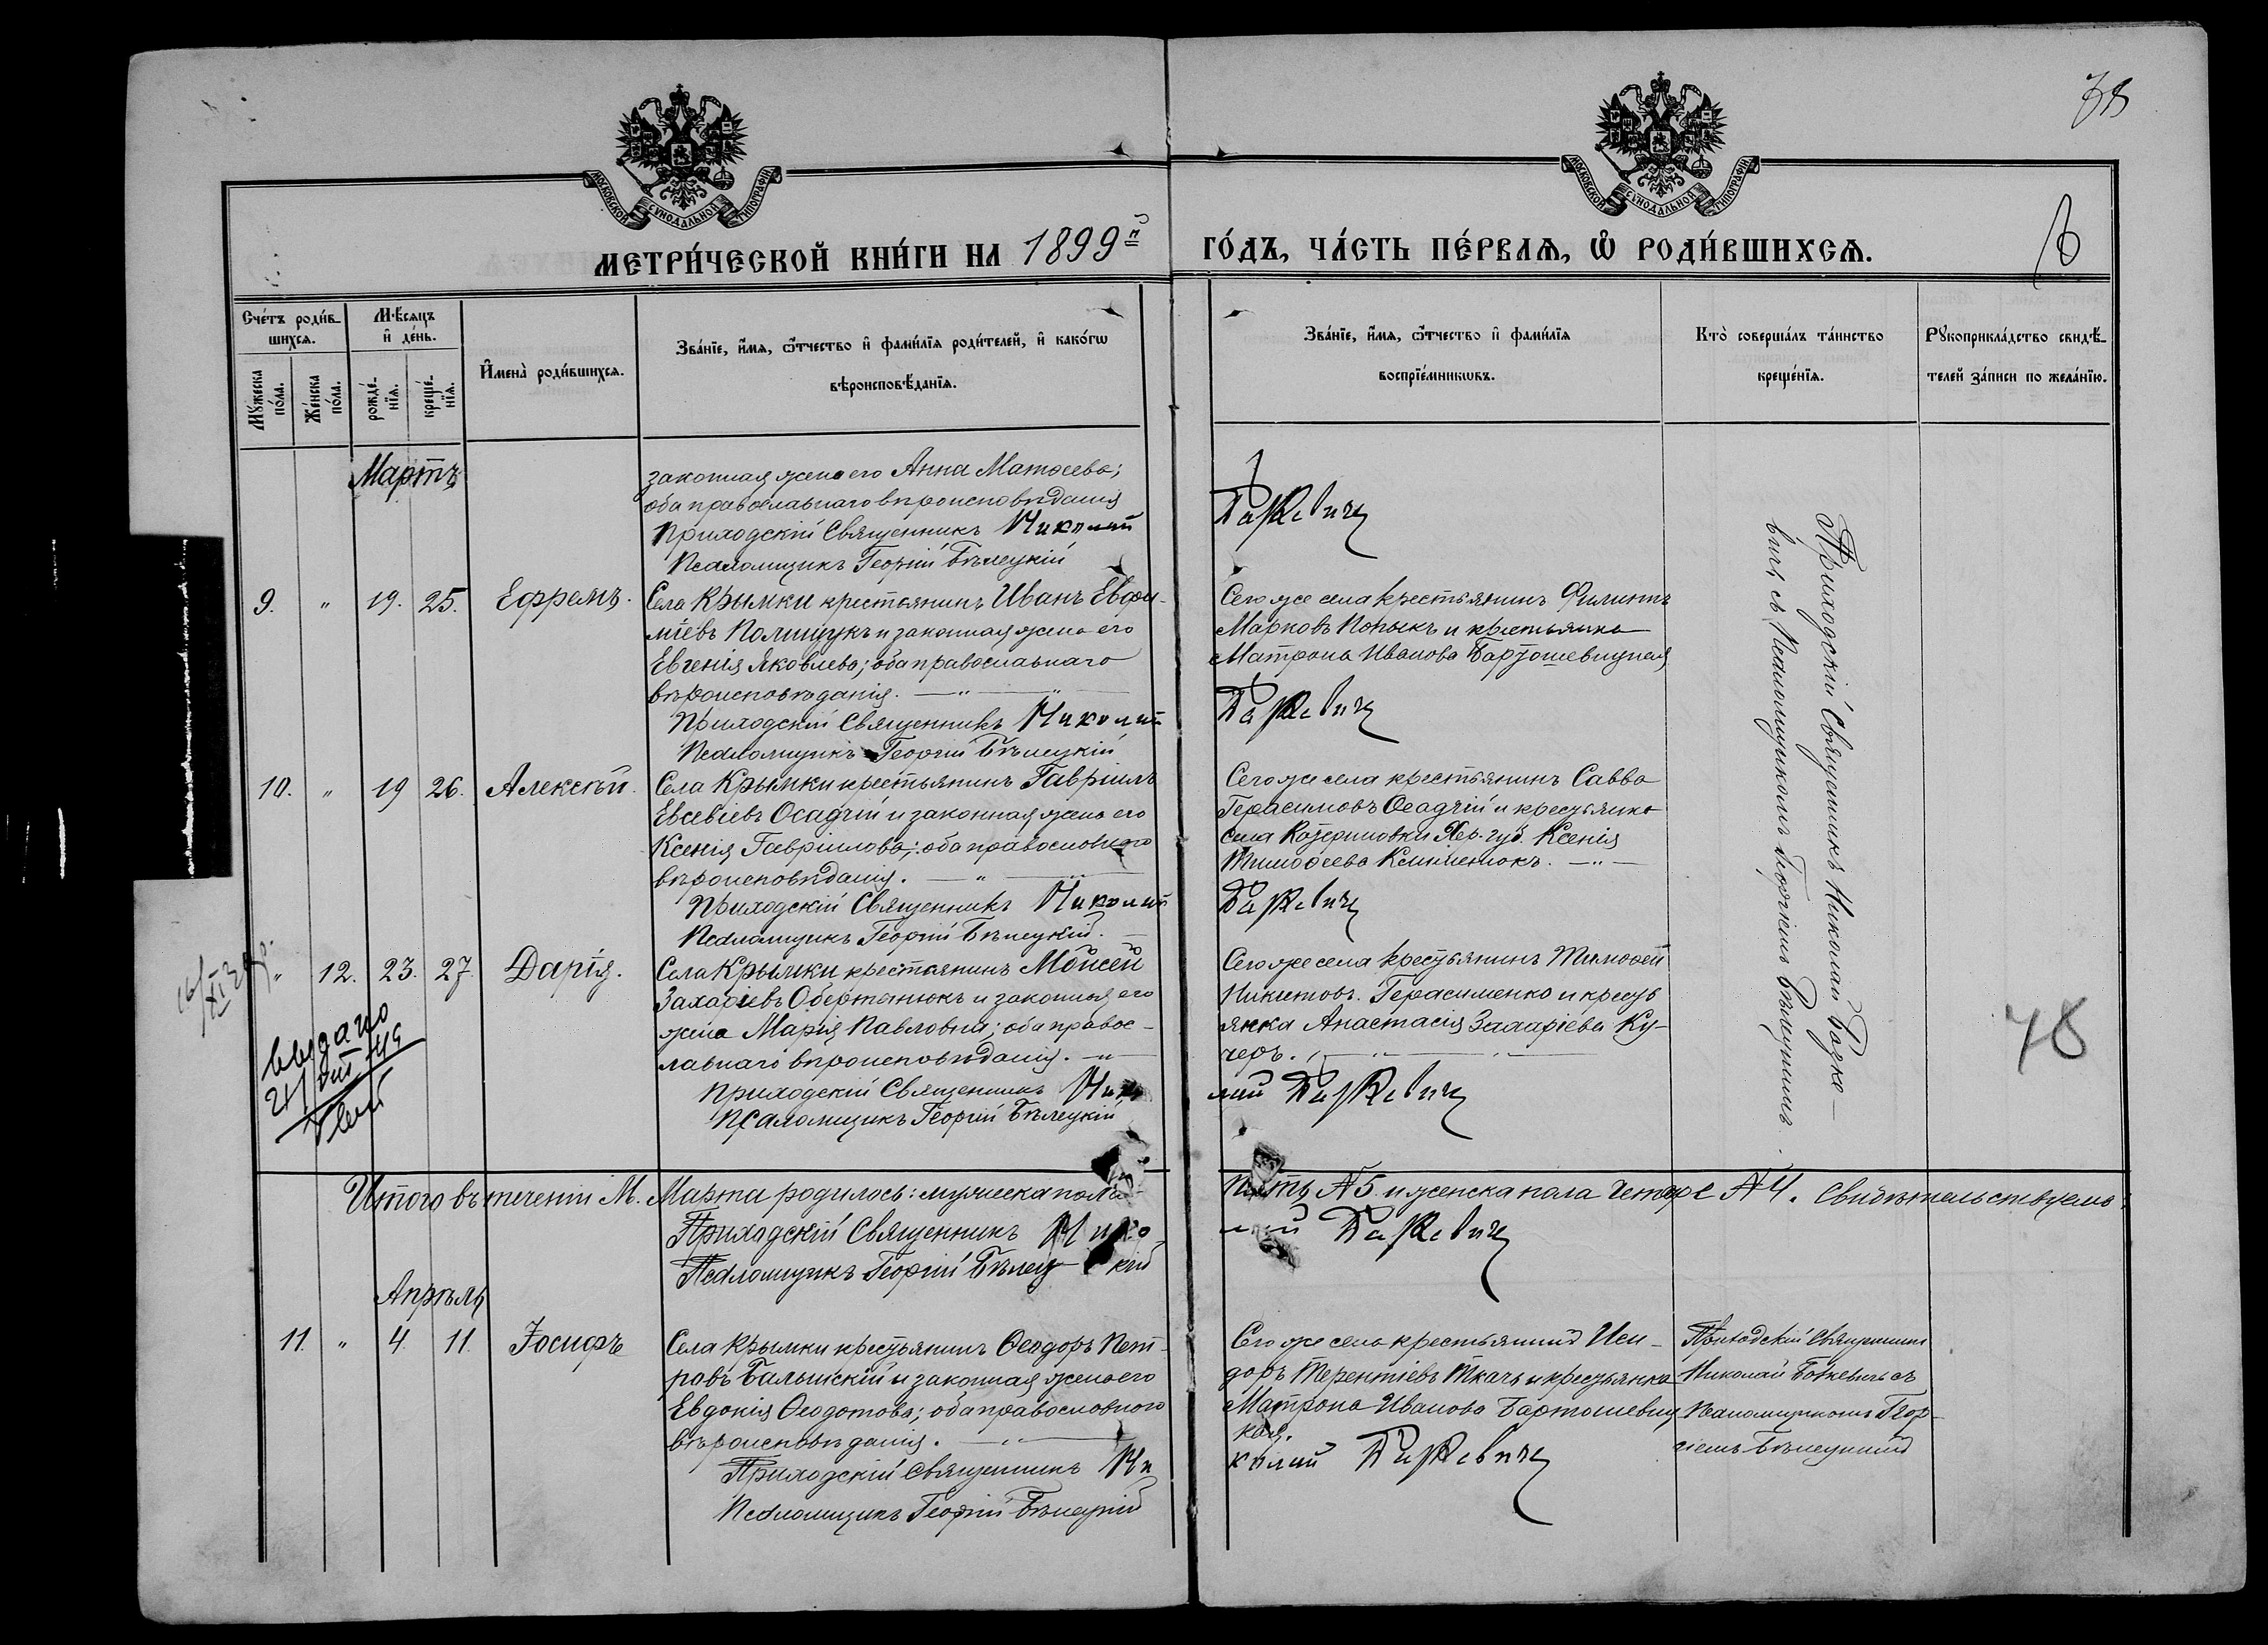 78
МОСКОВСКОЙ СѴНОДАЛЬНОЙ ТИПОГРАФІИ
МОСКОВСКОЙ СѴНОДАЛЬНОЙ ТИПОГРАФІИ
МЕТРИ́ЧЕСКОЙ КНИ́ГИ НА 1899й
ГО́ДЪ, ЧА́СТЬ ПЕ́РВАѦ, Ѡ҆ РОДИ́ВШИХСѦ.
Сче́тъ роди́в-
шихсѧ.
Мѣ́сѧцъ
и҆ де́нь.
Мꙋ́жеска
по́ла.
Же́нска
по́ла.
рожде́-
нїѧ.
креще́-
нїѧ.
И҆мена̀ роди́вшихсѧ.
Зва́нїе, и҆́мѧ, ѻ҆́тчество и҆ фами́лїѧ роди́телей, и҆ како́гѡ
вѣроисповѣ́данїѧ.
Зва́нїе, и҆́мѧ, ѻ҆́тчество и҆ фами́лїѧ
воспрїе́мникѡвъ.
Кто̀ соверша́лъ та́инство
креще́нїѧ.
Рꙋкоприкла́дство свидѣ́-
телей за́писи по жела́нїю.
Мартъ
законная жена его Анна Матѳеева;
оба православнаго вѣроисповѣданія
Приходскій Священникъ Николай
Псаломщикъ Георгій Бѣлецкій
9. " 19. 25. Ефремъ.
Села Крымки крестьянинъ Иванъ Евфи-
міевъ Полищукъ и законная жена его
Евгенія Яковлева; оба православнаго
вѣроисповѣданія. — " —
Приходскій Священникъ Николай
Псаломщикъ Георгій Бѣлецкій
Сего же села крестьянинъ Филиппъ
Марковъ и крестьянка
Матрона Иванова Бартошевицкая
10. " 19 26. Алексѣй.
Села Крымки крестьянинъ Гавріилъ
Евсевіевъ Осадчій и законная жена его
Ксенія Гавріилова; оба православнаго
вѣроисповѣданія. — " —
Приходскій Священникъ Николай
Псаломщикъ Георгій Бѣлецкій.
Сего же села крестьянинъ Савва
Герасимовъ Осадчій и крестьянка
села Хер. губ. Ксенія
Тимоѳеева Клименюкъ. — " —
" 12. 23. 27. Дарія.
Села Крымки крестьянинъ Мойсей
Захаріевъ Обертанюкъ и законная его
жена Марія Павловна; оба правос-
лавнаго вѣроисповѣданія. — " —
Приходскій Священникъ Нико
Псаломщикъ Георгій Бѣлецкій
Сего же села крестьянинъ Тимоѳей
Никитовъ Герасименко и кресть
янка Анастасія Захаріева Ку-
черъ. — " —
лай
выдано
Приходскій Священникъ Николай
съ Псаломщикомъ Георгіемъ Бѣлецкимъ.
78
Итого въ теченіи М. Марта родилось: мужеска пола
пять №5. и женска пола четыре №4. Свидѣтельствуемъ:
Приходскій Священникъ Нико
Псаломщикъ Георгій Бѣлецкій
Апрѣль
11. " 4. 11. Іосифъ
Села Крымки крестьянинъ Ѳеодоръ Пет-
ровъ и законная жена его
Евдокія Ѳеодотова; оба православнаго
вѣроисповѣданія. — " —
Приходскій Священникъ Ни
Псаломщикъ Георгій Бѣлецкій
Сего же села крестьянинъ Иси-
доръ Терентіевъ Ткачъ и крестьянка
Матрона Иванова Бартошевиц
кая.
колай
Приходскій Священникъ
Николай съ
Псаломщикомъ Геор-
гіемъ Бѣлецкимъ